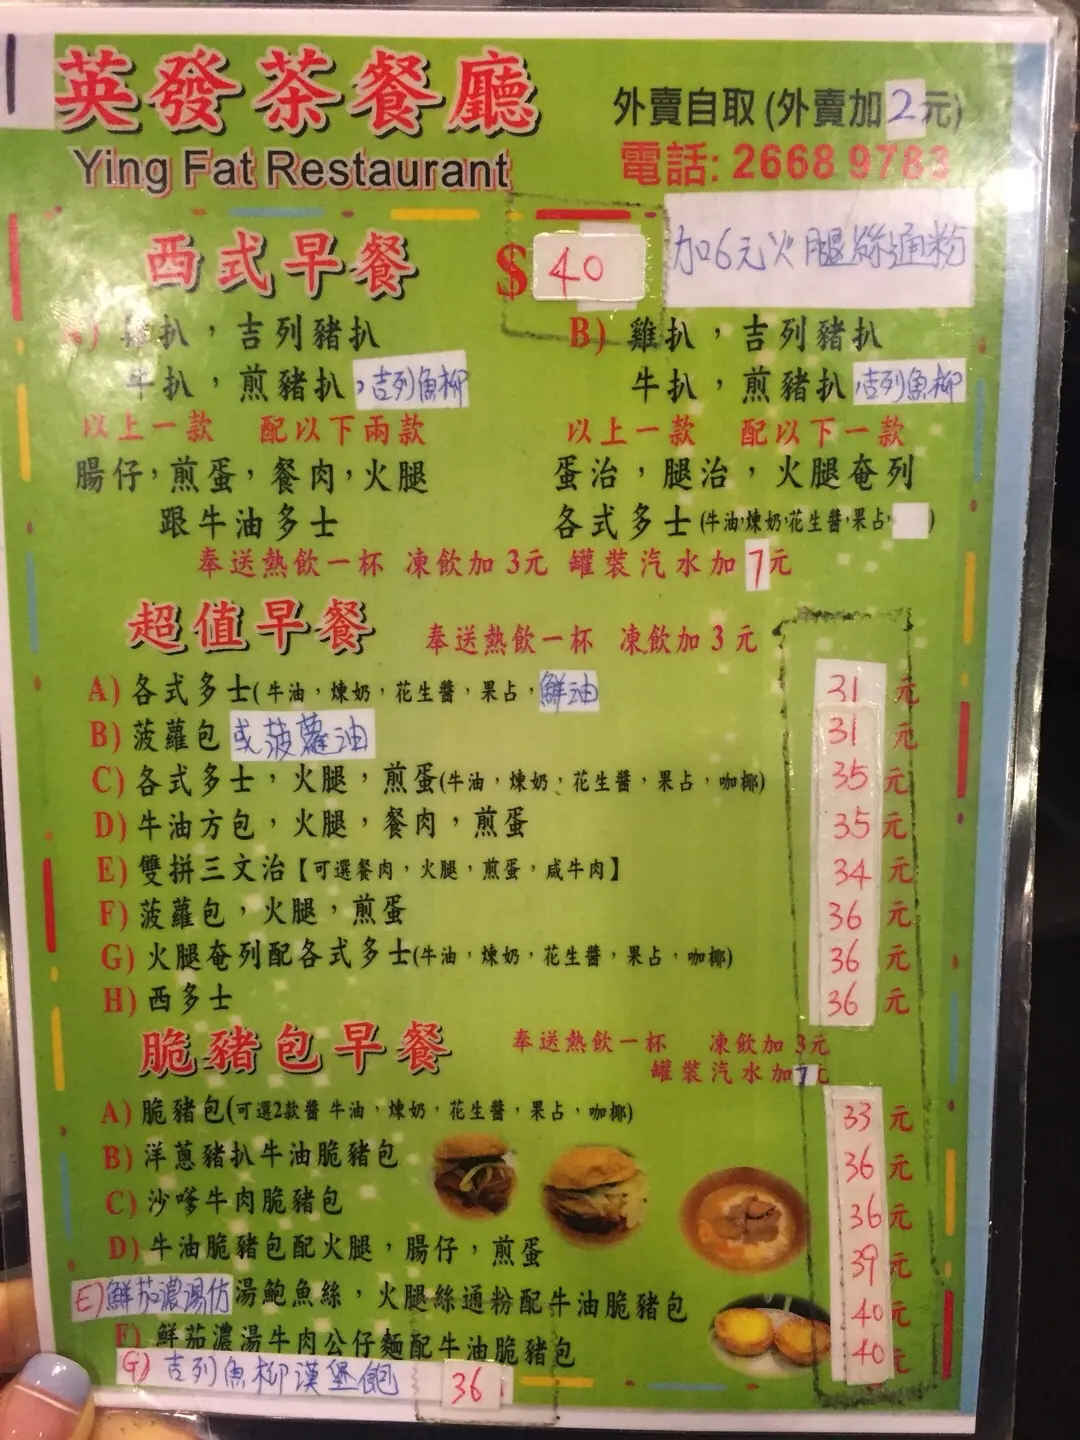 英發茶餐廳
Ying Fat Restaurant
外賣自取 (外賣加2元)
電話: 2668 9783
西式早餐 $40
加6元火腿絲通粉
A) 雞扒，吉列豬扒
牛扒，煎豬扒，吉列魚柳
以上一款 配以下兩款
腸仔，煎蛋，餐肉，火腿
跟牛油多士
B) 雞扒，吉列豬扒
牛扒，煎豬扒，吉列魚柳
以上一款 配以下一款
蛋治，腿治，火腿奄列
各式多士(牛油，煉奶，花生醬，果占， )
奉送熱飲一杯 凍飲加3元 罐裝汽水加7元
超值早餐 奉送熱飲一杯 凍飲加3元
A) 各式多士(牛油，煉奶，花生醬，果占，鮮油 31元
B) 菠蘿包或菠蘿油 31元
C) 各式多士，火腿，煎蛋(牛油，煉奶，花生醬，果占，咖椰) 35元
D) 牛油方包，火腿，餐肉，煎蛋 35元
E) 雙拼三文治【可選餐肉，火腿，煎蛋，咸牛肉】 34元
F) 菠蘿包，火腿，煎蛋 36元
G) 火腿奄列配各式多士(牛油，煉奶，花生醬，果占，咖椰) 36元
H) 西多士 36元
脆豬包早餐 奉送熱飲一杯 凍飲加3元
罐裝汽水加7元
A) 脆豬包(可選2款醬 牛油，煉奶，花生醬，果占，咖椰) 33元
B) 洋蔥豬扒牛油脆豬包 36元
C) 沙嗲牛肉脆豬包 36元
D) 牛油脆豬包配火腿，腸仔，煎蛋 39元
E) 鮮茄濃湯仿湯鮑魚絲，火腿絲通粉配牛油脆豬包 40元
F) 鮮茄濃湯牛肉公仔麵配牛油脆豬包 40元
G) 吉列魚柳漢堡飽 36